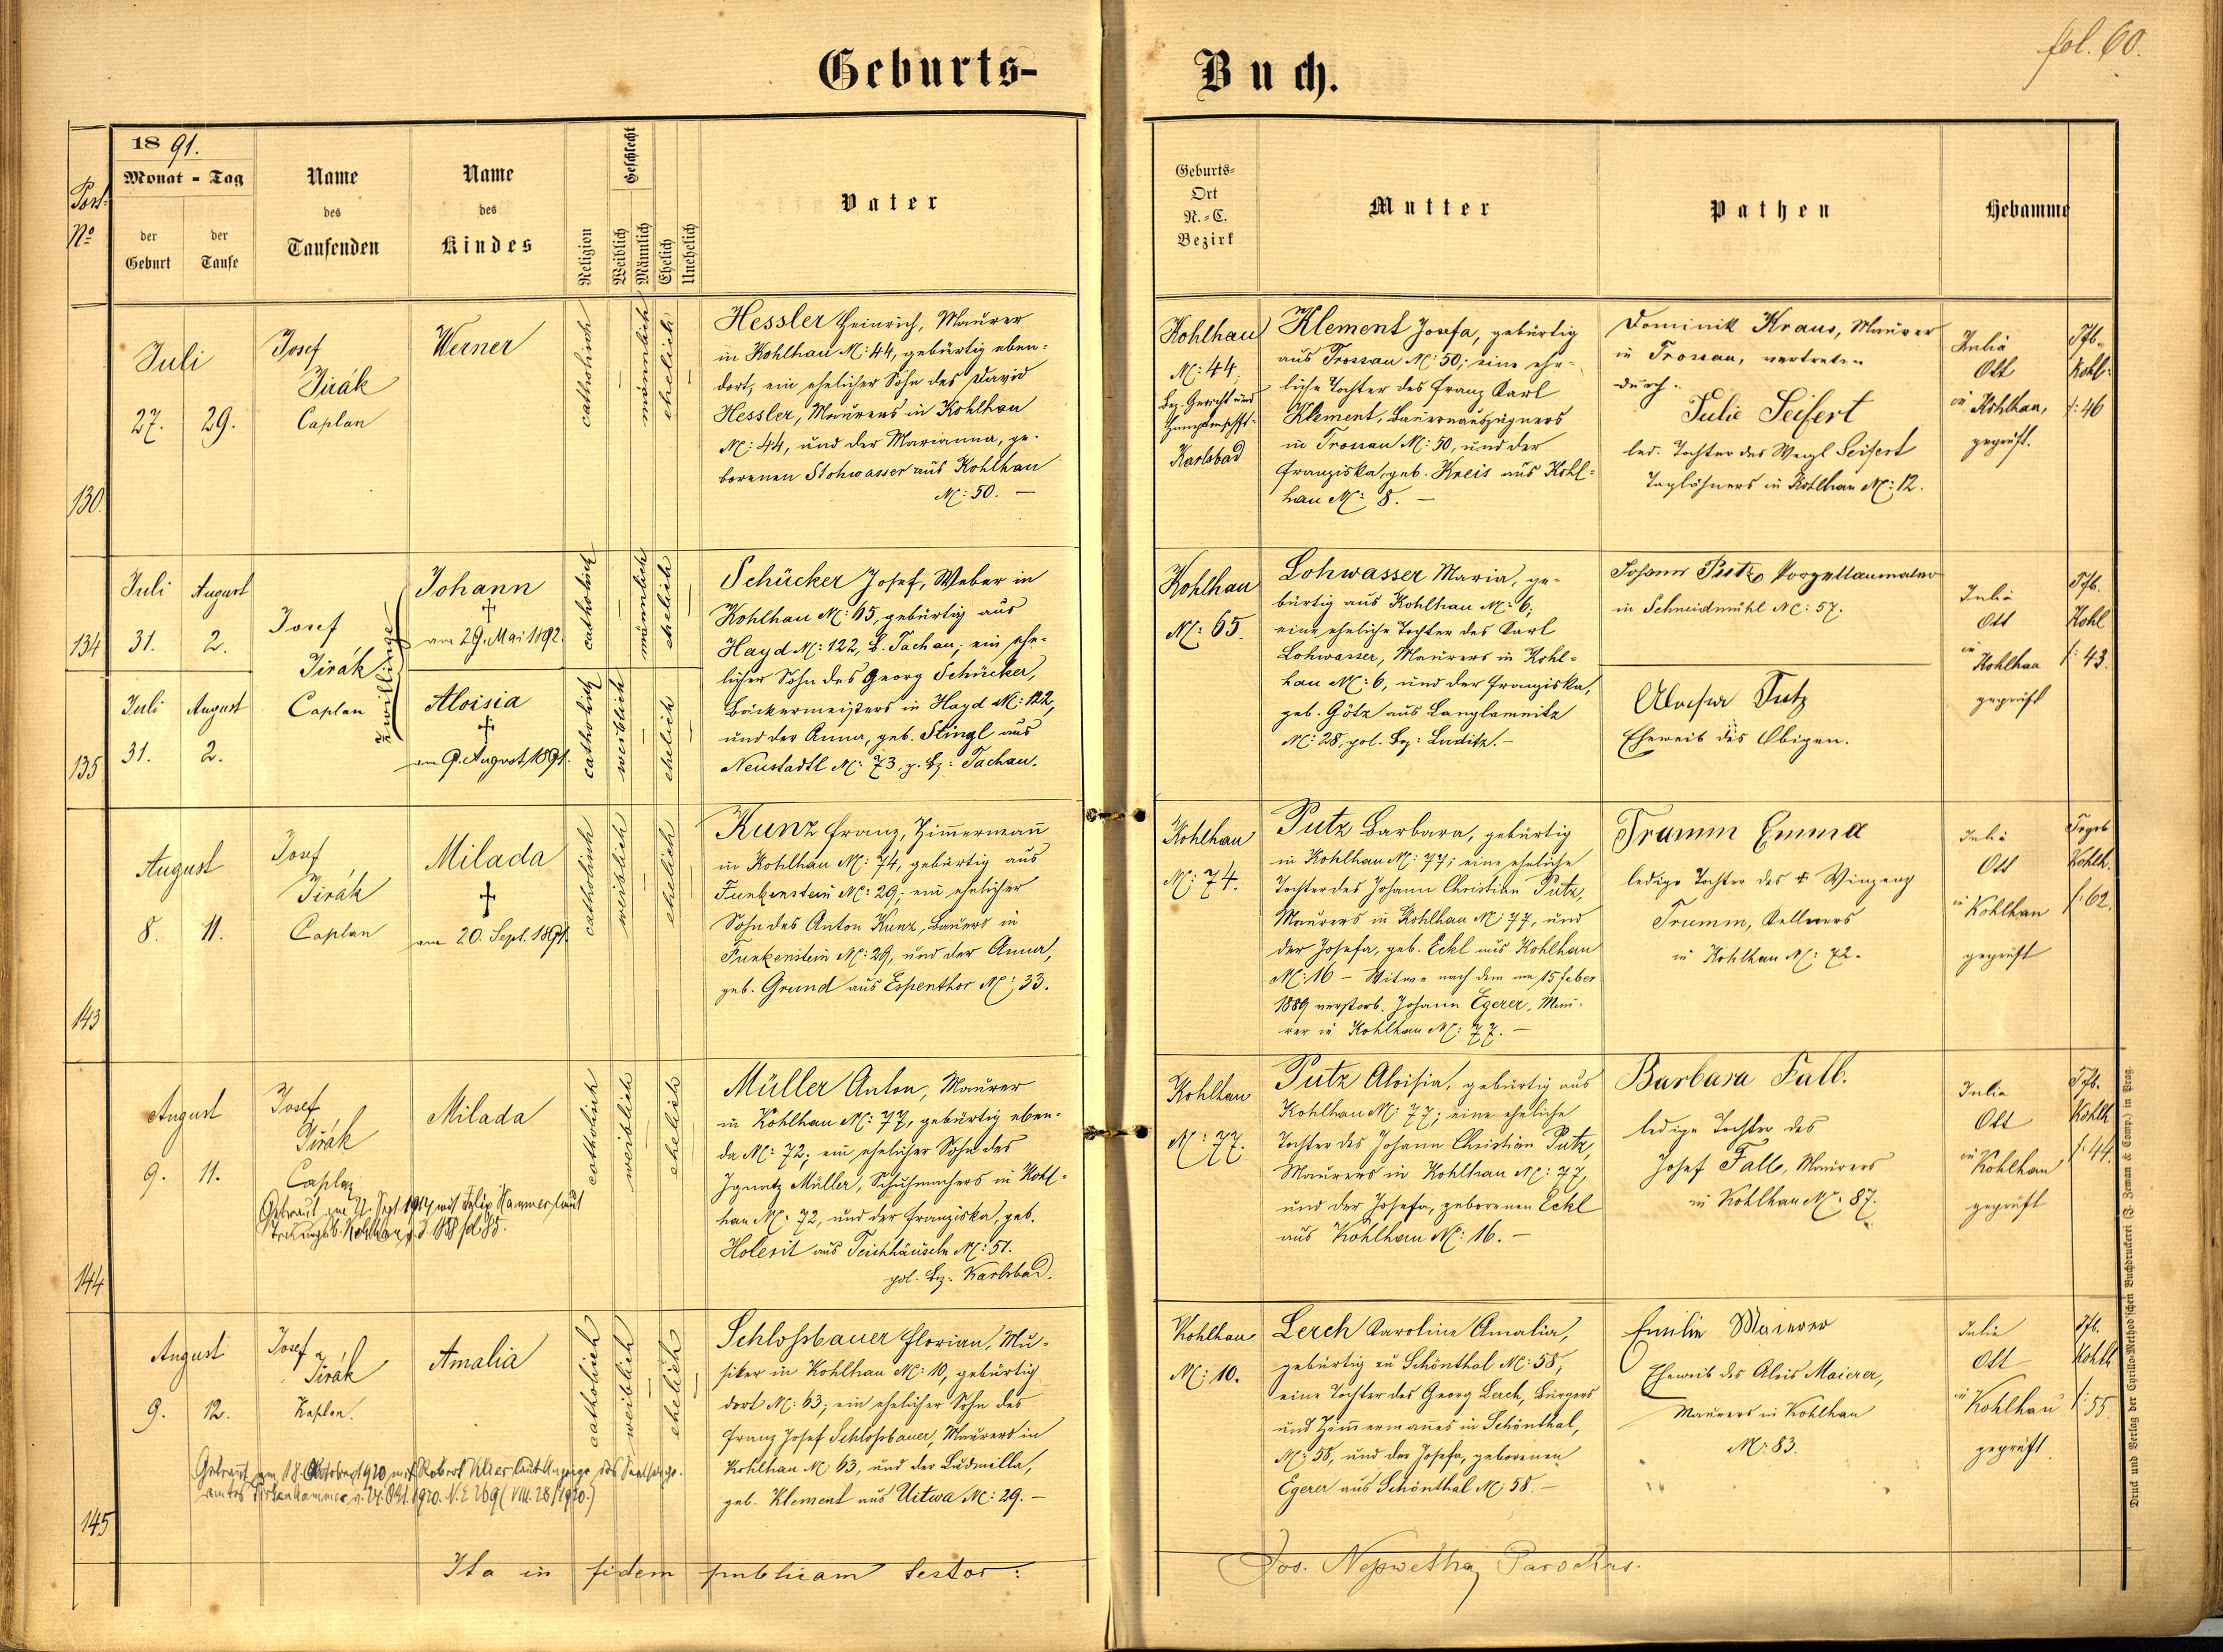 fol. 60.
Geburts-Buch.
Post-
No
1891.
Monat - Tag
der Geburt
der Taufe
Name des Taufenden
Name des Kindes
Religion
Geschlecht
Weiblich
Männlich
Ehelich
Unehelich
Vater
Geburts-
Ort
N.-C.
Bezirk
Mutter
Pathen
Hebamme
130.
Juli
27. 29.
Josef
Jirák
Caplan
Werner
catholisch
männlich
ehelich
Hessler Heinrich, Maurer
in Kohlhau N: 44, gebürtig eben-
dort, ein ehelicher Sohn des David
Hessler, Maurers in Kohlhau
N: 44, und der Marianna, ge-
borenen Stohwasser aus Kohlhau
N: 50. —
Kohlhau
N: 44,
Bez.-Gericht und
Karlsbad
Klement Josefa, gebürtig
aus Trossau N: 50; eine ehe-
liche Tochter des Franz Karl
Klement, Bauernauszüglers
in Trossau N: 50, und der
Franziska, geb. Kreis aus Kohl-
hau N: 8. —
Dominik Kraus, Maurer
in Trossau, vertreten
durch
Julie Seifert
led. Tochter des Wenzl Seifert
Taglöhners in Kohlhau N: 12.
Julia
Ott
in Kohlhau,
geprüft.
Tfb.
Kohl-
f: 46
134
Juli August
31. 2.
135
Juli August
31. 2.
Josef
Jirák
Caplan
Zwillinge
Johann
†
am 29. Mai 1892.
Aloisia
†
am 9. August 1891.
catholisch
männlich
ehelich
catholisch
weiblich
ehelich
Schücker Josef, Weber in
Kohlhau N: 65, gebürtig aus
Hayd N: 122, B. Tachau; ein ehe-
licher Sohn des Georg Schücker,
Bäckermeisters in Hayd N: 122,
und der Anna, geb. Stingl aus
Neustadtl N: 73, p. Bz: Tachau.
Kohlhau
N: 65.
Lohwasser Maria, ge-
bürtig aus Kohlhau N: 6;
eine eheliche Tochter des Karl
Lohwasser, Maurers in Kohl-
hau N: 6, und der Franziska,
geb. Götz aus Langlamnitz
N: 28, pol. Bz: Luditz. —
Johann Putz, Porzellanmaler
in Schneidmühl N: 57.
Aloisia Putz
Eheweib des Obigen.
Julia
Ott
in
Kohlhau
geprüft
Tfb.
Kohl
f: 43.
143
August
8. 11.
Josef
Jirák
Caplan
Milada
†
am 20. Sept. 1891.
catholisch
weiblich
ehelich
Kunz Franz, Zimmermann
in Kohlhau N: 74, gebürtig aus
Funkenstein N: 29; ein ehelicher
Sohn des Anton Kunz, Bauers in
Funkenstein N: 29, und der Anna,
geb. Grund aus Espenthor N: 33.
Kohlhau
N: 74.
Putz Barbara, gebürtig
in Kohlhau N: 77; eine eheliche
Tochter des Johann Christian Putz,
Maurers in Kohlhau N: 77, und
der Josefa, geb. Eckl aus Kohlhau
N: 16 – Witwe nach dem am 15 Feber
1889 verstorb. Johann Egerer, Mau-
rer in Kohlhau N: 77. —
Trumm Emma
ledige Tochter des † Winzenz
Trumm, Kellners
in Kohlhau N: 72.
Julia
Ott
in Kohlhau
geprüft
Kohlh.
f: 62.
144
August
9. 11.
Josef
Jirák
Caplan
Getraut am 22. Sept. 1914 mit Felix Hammer laut
Milada
catholisch
weiblich
ehelich
Müller Anton, Maurer
in Kohlhau N: 77, gebürtig eben-
da N: 72; ein ehelicher Sohn des
Ignatz Müller, Schuhmachers in Kohl-
hau N: 72, und der Franziska, geb.
Holerit aus Teichhäuseln N: 51.
pol. Bz: Karlsbad.
Kohlhau
N: 77.
Putz Aloisia, gebürtig aus
Kohlhau N: 77; eine eheliche
Tochter des Johann Christian Putz,
Maurers in Kohlhau N: 77,
und der Josefa, geborenen Eckl
aus Kohlhau N: 16. —
Barbara Fall.
ledige Tochter des
Josef Fall, Maurers
in Kohlhau N: 87.
Julia
Ott
in Kohlhau
geprüft
Tfb.
Kohlh
f: 44.
145
August
9. 12.
Josef
Jirák
Kaplan.
Amalia
catholisch
weiblich
ehelich
Getraut am 18. Oktober 1920 mit Robert Klier laut Anzeige des
amtes Pirkenhammer v. 24. Okt. 1920. N. E 269 (VIII. 28/1920.)
Schlossbauer Florian, Mu-
siker in Kohlhau N: 10, gebürtig
dort N: 63; ein ehelicher Sohn des
Franz Josef Schlossbauer, Maurers in
Kohlhau N: 63, und der Ludmilla,
geb. Klement aus Uitwa N: 29. —
Kohlhau
N: 10.
Lerch Karoline Amalia,
gebürtig zu Schönthal N: 58;
eine Tochter des Georg Lerch, Bürgers
und Zimmermannes in Schönthal,
N: 58, und der Josefa, geborenen
Egerer aus Schönthal N: 58. —
Emilie Maierer
Eheweib des Alois Maierer,
Maurers in Kohlhau
N: 83.
Julie
Ott
in Kohlhau
geprüft.
Tfb.
Kohlh
f: 55.
Ita in fidem publicam testor:
Jos. Parochus.
Druck und Verlag der Cyrillo-Method'schen Buchdruckerei (J. Zeman & Comp.) in Prag.